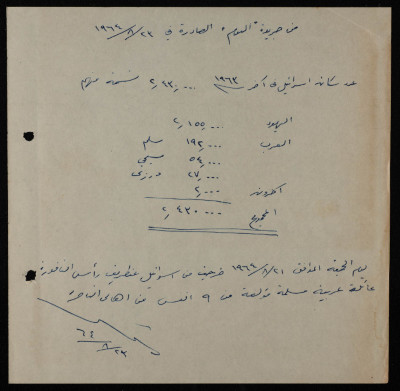 من جريدة "اليوم" الصادرة في ٢٣/٨/١٩٦٤
عدد سكان اسرائيل في آخر ١٩٦٣ ٢,٤٣٠,٠٠٠ نسمة منهم
اليهود ٢,١٥٥,٠٠٠
العرب ١٩٢,٠٠٠ مسلم
٥٤,٠٠٠ مسيحي
٢٧,٠٠٠ درزي
آخرون ٢,٠٠٠
المجموع ٢,٤٣٠,٠٠٠
يوم الجمعة الموافق ٢١/٨/١٩٦٤ خرجت من اسرائيل عن طريق رأس الناقورة
عائلة عربية مسلمة مؤلفة من ٩ انفس من اهالي الناصرة
٢٣/٨/٦٤